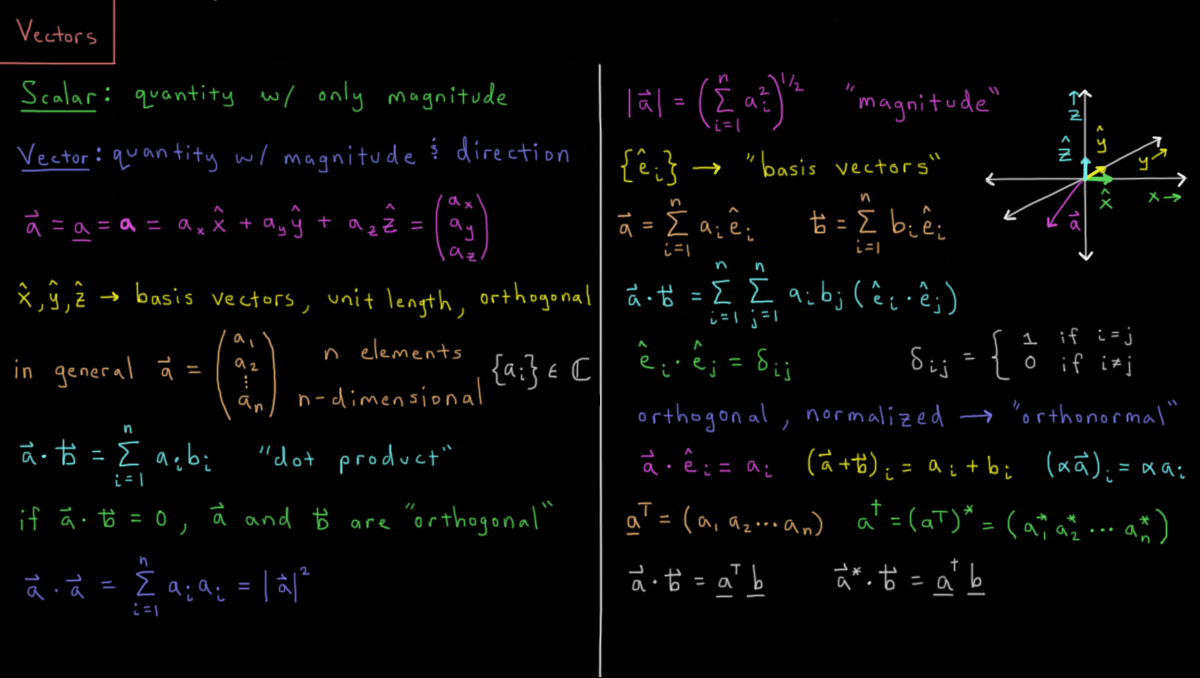 Vectors
Scalar: quantity w/ only magnitude
Vector: quantity w/ magnitude & direction
a⃗ = a̲ = 𝐚 = aₓx̂ + a_yŷ + a_zẑ = (aₓ a_y a_z)
x̂, ŷ, ẑ → basis vectors, unit length, orthogonal
in general a⃗ = (a₁ a₂ ⋮ aₙ) n elements {aᵢ} ∈ ℂ
n-dimensional
a⃗ · b⃗ = Σ_{i=1}^{n} aᵢbᵢ "dot product"
if a⃗ · b⃗ = 0, a⃗ and b⃗ are "orthogonal"
a⃗ · a⃗ = Σ_{i=1}^{n} aᵢaᵢ = |a⃗|²
|a⃗| = (Σ_{i=1}^{n} aᵢ²)^{1/2} "magnitude"
{êᵢ} → "basis vectors"
a⃗ = Σ_{i=1}^{n} aᵢêᵢ b⃗ = Σ_{i=1}^{n} bᵢêᵢ
a⃗ · b⃗ = Σ_{i=1}^{n} Σ_{j=1}^{n} aᵢbⱼ(êᵢ · êⱼ)
êᵢ · êⱼ = δᵢⱼ δᵢⱼ = { 1 if i=j
0 if i≠j
orthogonal, normalized → "orthonormal"
a⃗ · êᵢ = aᵢ (a⃗+b⃗)ᵢ = aᵢ + bᵢ (αa⃗)ᵢ = αaᵢ
a̲ᵀ = (a₁ a₂ ⋯ aₙ) a† = (aᵀ)* = (a₁* a₂* ⋯ aₙ*)
a⃗ · b⃗ = a̲ᵀ b̲ a⃗* · b⃗ = a̲† b̲
z
ẑ
ŷ
y
x̂
x →
a⃗